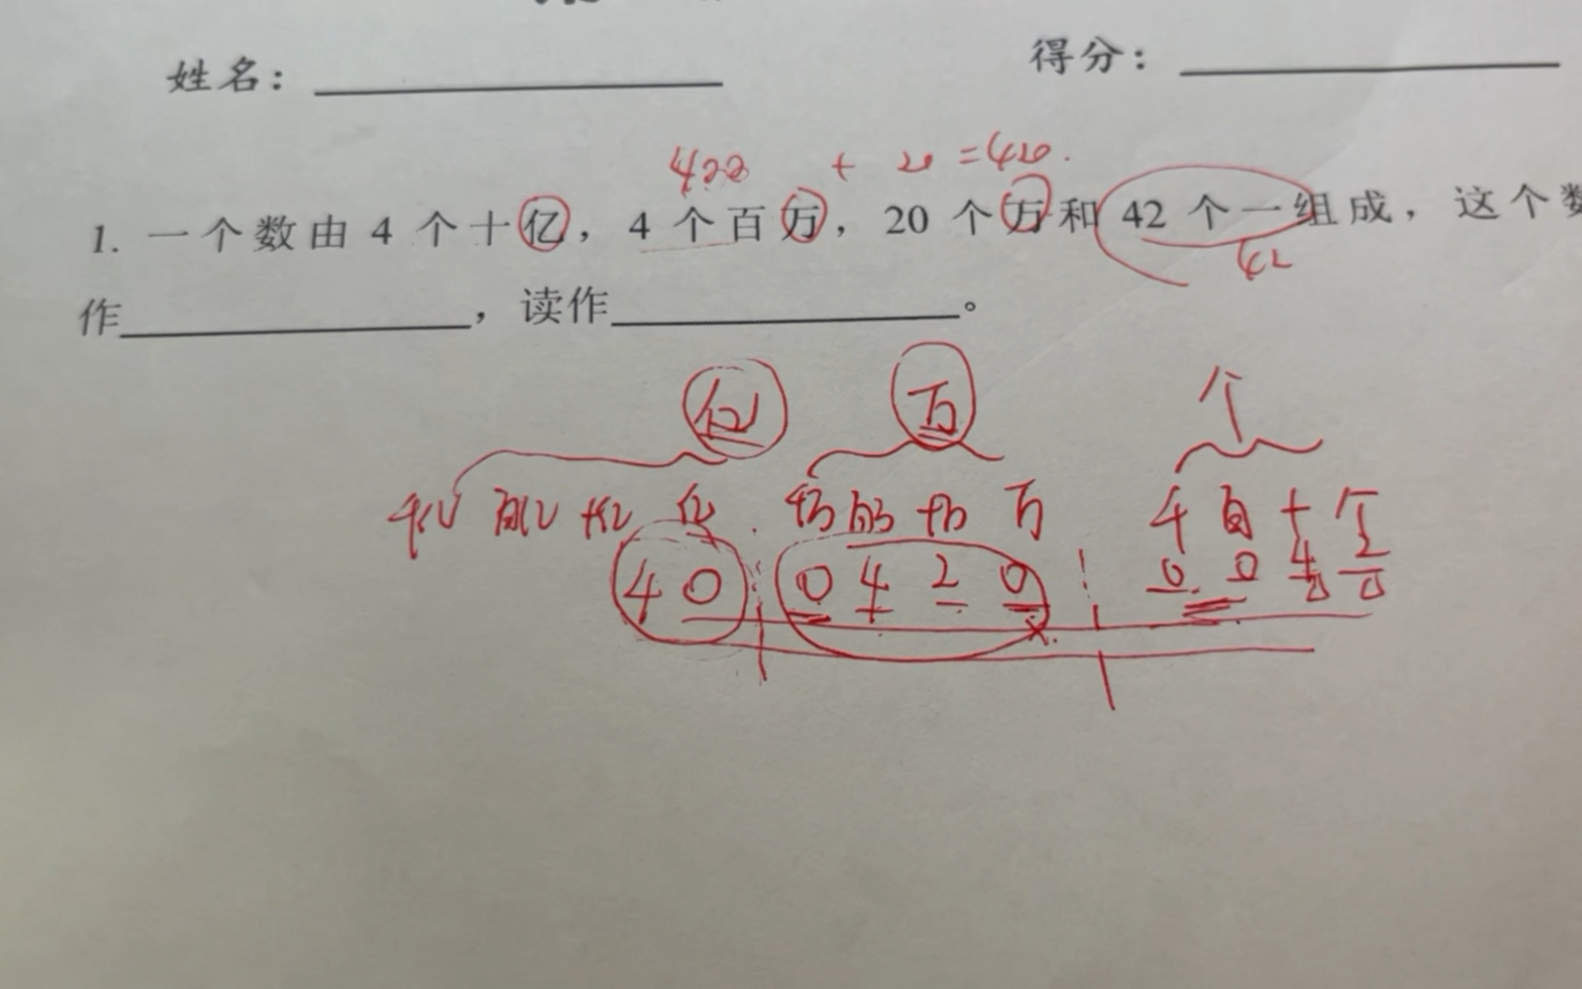 姓名：
得分：
400 + 20 = 420.
1. 一个数由 4 个十亿，4 个百万，20 个万和 42 个一组成，这个数
42
作，读作。
亿 万 个
千亿 百亿 十亿 亿 千万 百万 十万 万 千 百 十 个
4 0 0 4 2 0 0 0 4 2